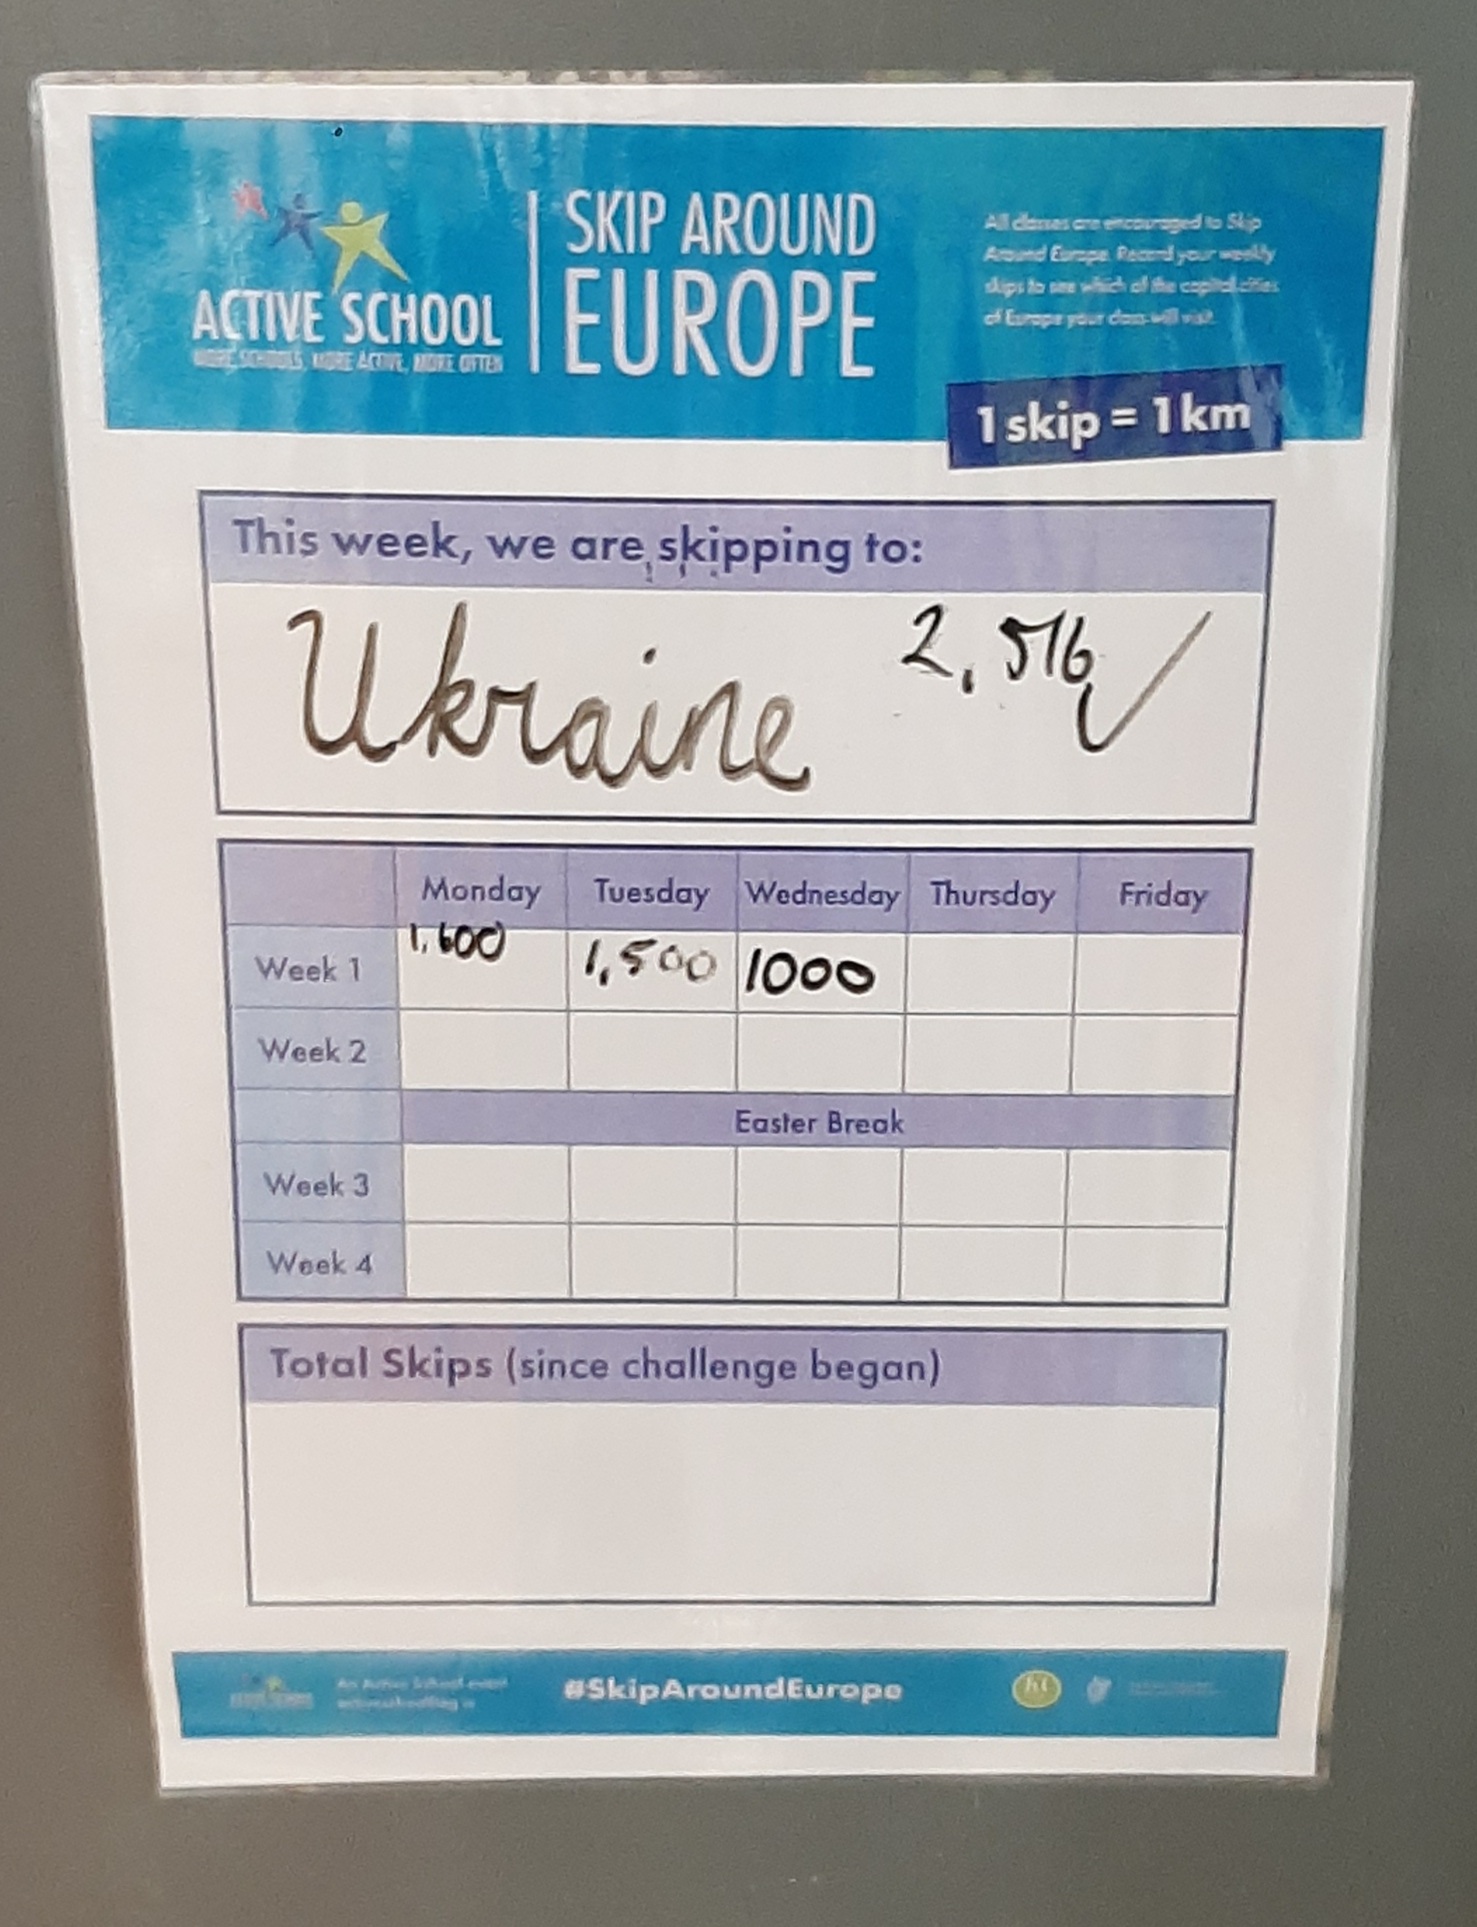 ACTIVE SCHOOL
MORE SCHOOLS, MORE ACTIVE, MORE OFTEN
SKIP AROUND
EUROPE
All classes are encouraged to Skip
Around Europe. Record your weekly
skips to see which of the capital cities
of Europe your class will visit.
1 skip = 1 km
This week, we are skipping to:
Ukraine 2,516
Monday Tuesday Wednesday Thursday Friday
Week 1 1,600 1,500 1000
Week 2
Easter Break
Week 3
Week 4
Total Skips (since challenge began)
An Active School event
#SkipAroundEurope